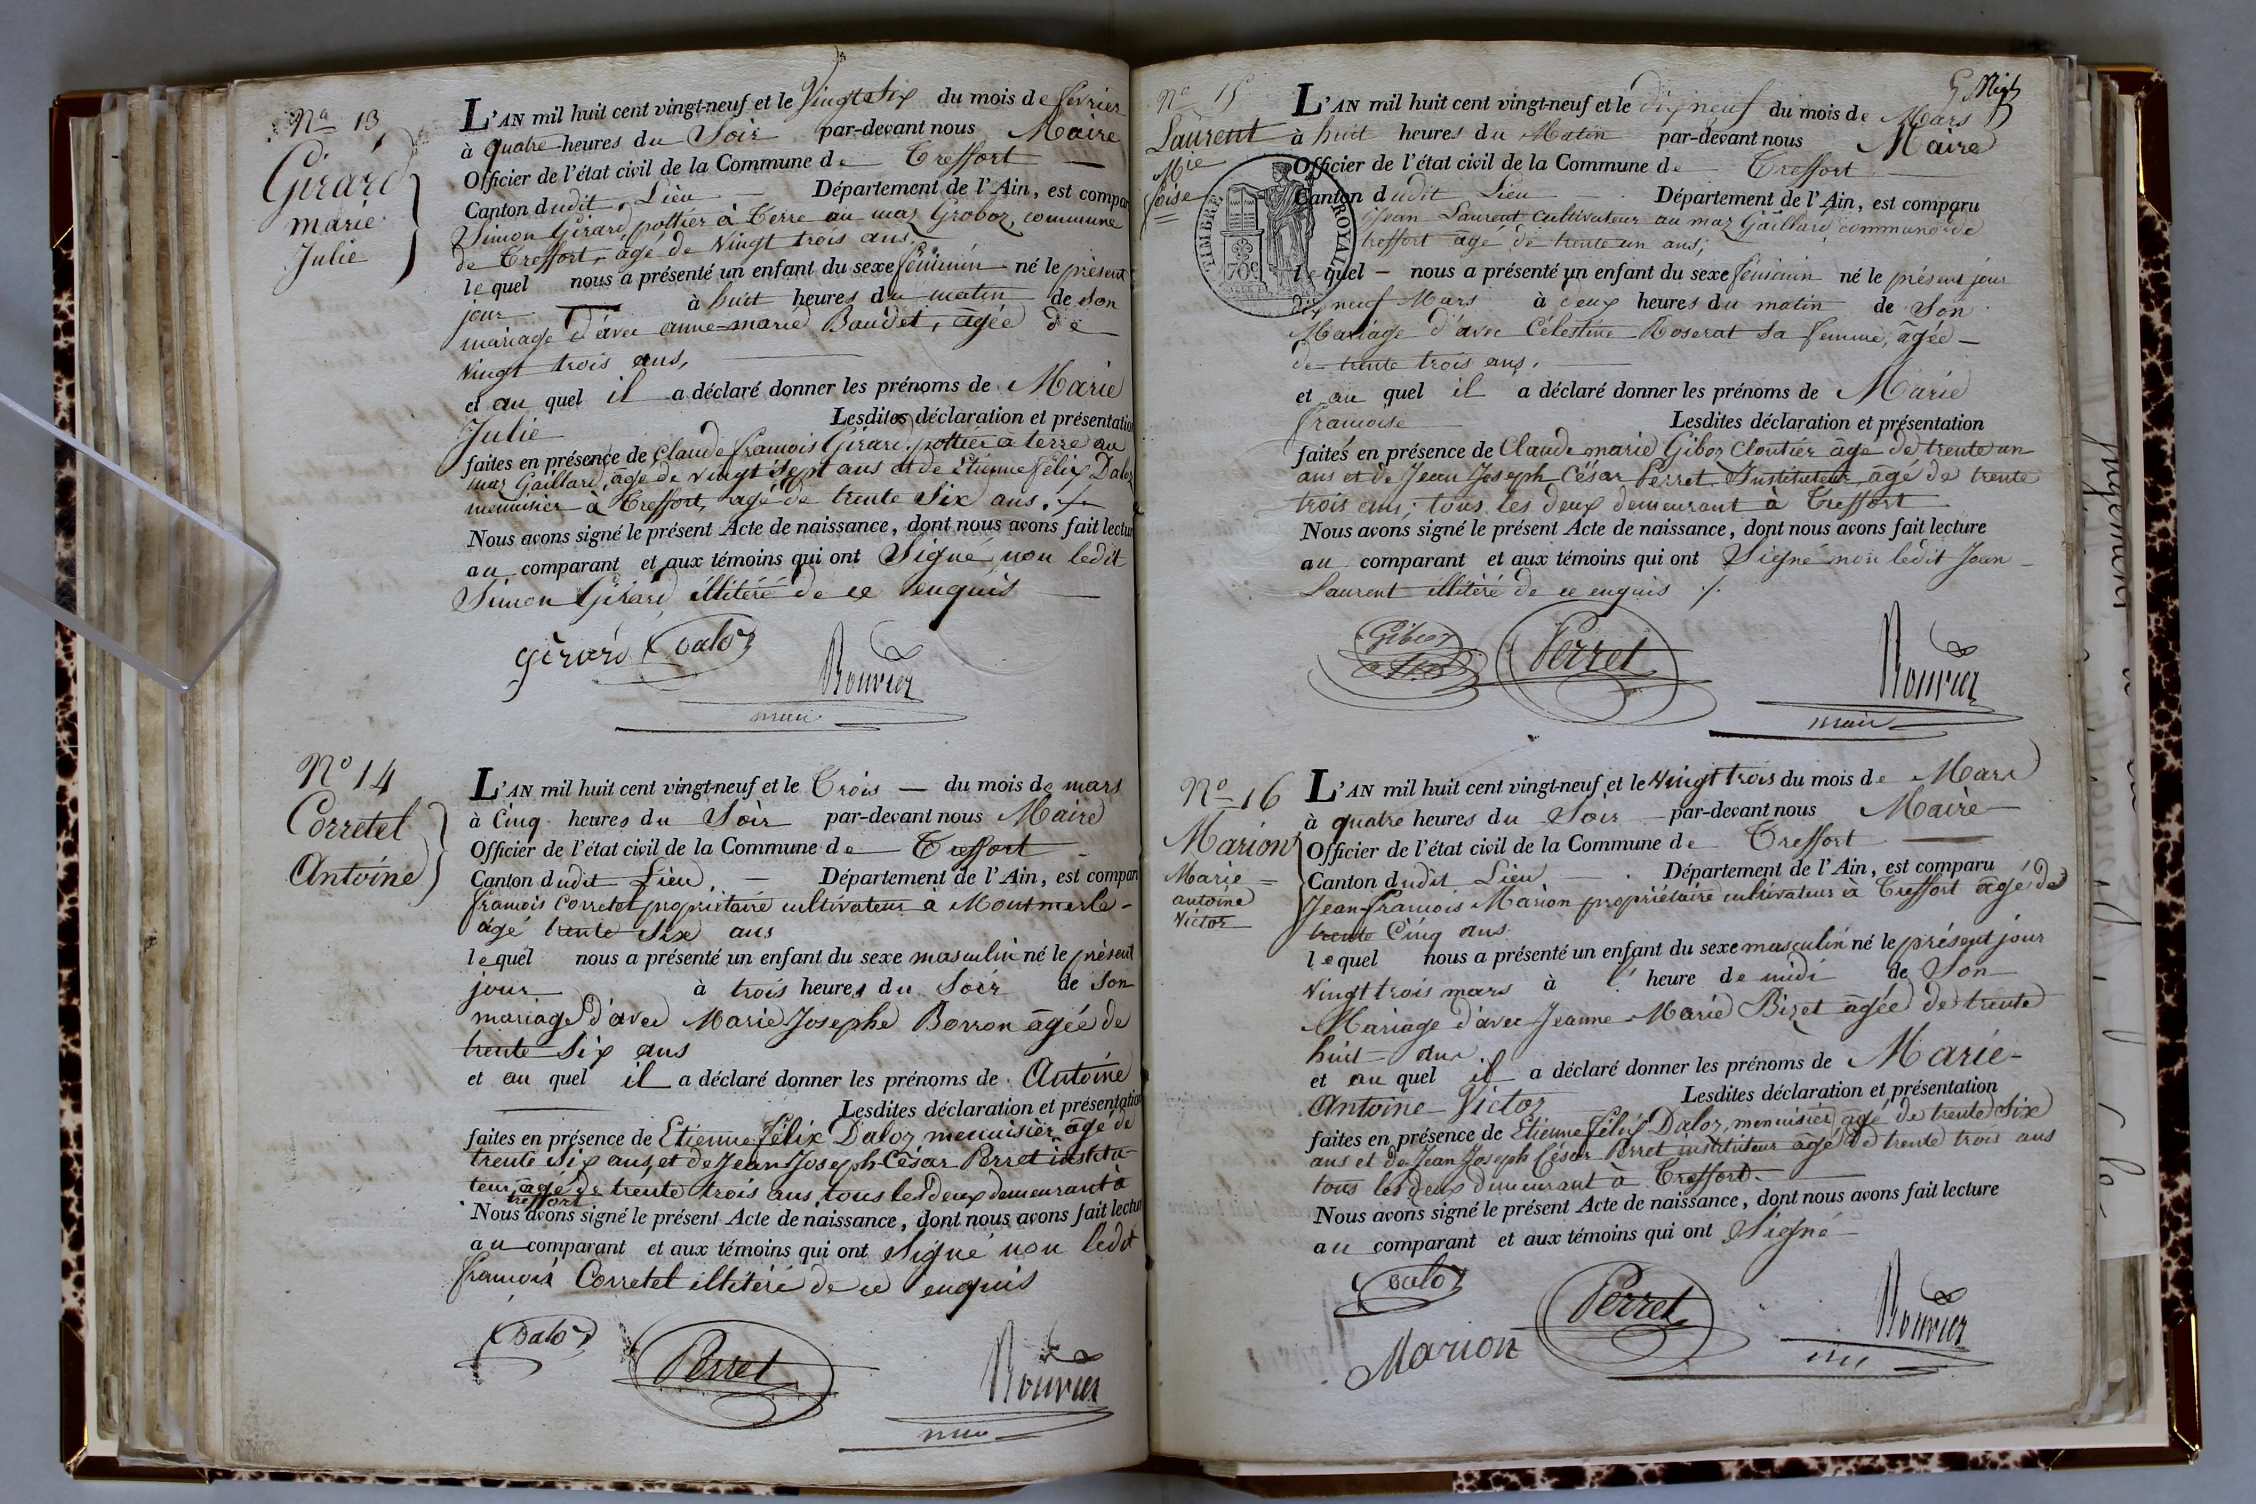 Nº 13
Girard
marie
Julie
L'AN mil huit cent vingt-neuf et le Vingt Six du mois de fevrier
à quatre heures du Soir par-devant nous Maire
Officier de l'état civil de la Commune de Treffort
Canton dudit Lieu Département de l'Ain, est compar
Simon Girard, pottier à Terre au maz Groboz, commune
de Treffort, agé de Vingt trois ans,
lequel nous a présenté un enfant du sexe féminin né le présent
jour à huit heures du matin de son
mariage d'avec anne-marie Baudet, agée de
vingt trois ans,
et au quel il a déclaré donner les prénoms de Marie
Julie Lesdites déclaration et présentation
faites en présence de Claude françois Girard, pottier à terre au
maz Gaillard, âgé de vingt sept ans et de Etienne félix Daloz
menuisier à Treffort, agé de trente Six ans. /.
Nous avons signé le présent Acte de naissance, dont nous avons fait lectur
au comparant et aux témoins qui ont Signé, non ledit
Simon Girard illitéré de ce enquis
girard Daloz
Bouvier
maire
Nº 14
Corretel
Antoine
L'AN mil huit cent vingt-neuf et le Trois du mois de mars
à Cinq heures du Soir par-devant nous Maire
Officier de l'état civil de la Commune de Treffort
Canton dudit Lieu, Département de l'Ain, est compar
françois Corretel propriétaire cultivateur à Montmerle
âgé trente Six ans
lequel nous a présenté un enfant du sexe masculin né le présent
jour à trois heures du Soir de Son
mariage d'avec Marie Josephe Borron âgée de
trente Six ans
et au quel il a déclaré donner les prénoms de Antoine
Lesdites déclaration et présentation
faites en présence de Etienne félix Daloz menuisier âgé de
trente Six ans, et de Jean Joseph César Perret institu-
teur âgé de trente trois ans, tous les deux demeurant à
treffort
Nous avons signé le présent Acte de naissance, dont nous avons fait lectur
au comparant et aux témoins qui ont Signé non ledit
françois Corretel illitéré de ce enquis
Daloz
Perret
Bouvier
Nº 15
Laurent
Mie
foise
TIMBRE ROYAL
70c
L'AN mil huit cent vingt-neuf et le dix neuf du mois de Mars
à huit heures du Matin par-devant nous Maire
Officier de l'état civil de la Commune de Treffort
Canton dudit Lieu Département de l'Ain, est comparu
Jean Laurent cultivateur au maz Gaillard, commune de
treffort âgé de trente un ans,
lequel nous a présenté un enfant du sexe féminin né le présent jour
dix neuf Mars à deux heures du matin de Son
Mariage d'avec Célestine Roserat sa femme, âgée
de trente trois ans,
et au quel il a déclaré donner les prénoms de Marie
francoise Lesdites déclaration et présentation
faites en présence de Claude marie Giboz Cloutier âgé de trente un
ans et de Jean Joseph César Perret Instituteur, âgé de trente
trois ans, tous les deux demeurant à Treffort
Nous avons signé le présent Acte de naissance, dont nous avons fait lecture
au comparant et aux témoins qui ont Signé non ledit Jean
Laurent illitéré de ce enquis /.
Giboz
Perret
Bouvier
maire
Nº 16
Marion
Marie
antoine
Victor
L'AN mil huit cent vingt-neuf et le Vingt trois du mois de Mars
à quatre heures du Soir par-devant nous Maire
Officier de l'état civil de la Commune de Treffort
Canton dudit Lieu Département de l'Ain, est comparu
Jean-francois Marion propriétaire cultivateur à Treffort âgé de
trente Cinq ans
lequel nous a présenté un enfant du sexe masculin né le présent jour
Vingt trois mars à l'heure de midi de Son
Mariage d'avec Jeanne-Marie Bizet âgée de trente
huit ans
et au quel il a déclaré donner les prénoms de Marie-
Antoine-Victor Lesdites déclaration et présentation
faites en présence de Etienne félix Daloz, menuisier âgé de trente Six
ans et de Jean Joseph César Perret instituteur âgé de trente trois ans
tous les deux demeurant à Treffort
Nous avons signé le présent Acte de naissance, dont nous avons fait lecture
au comparant et aux témoins qui ont Signé
Daloz
Perret
Bouvier
Marion